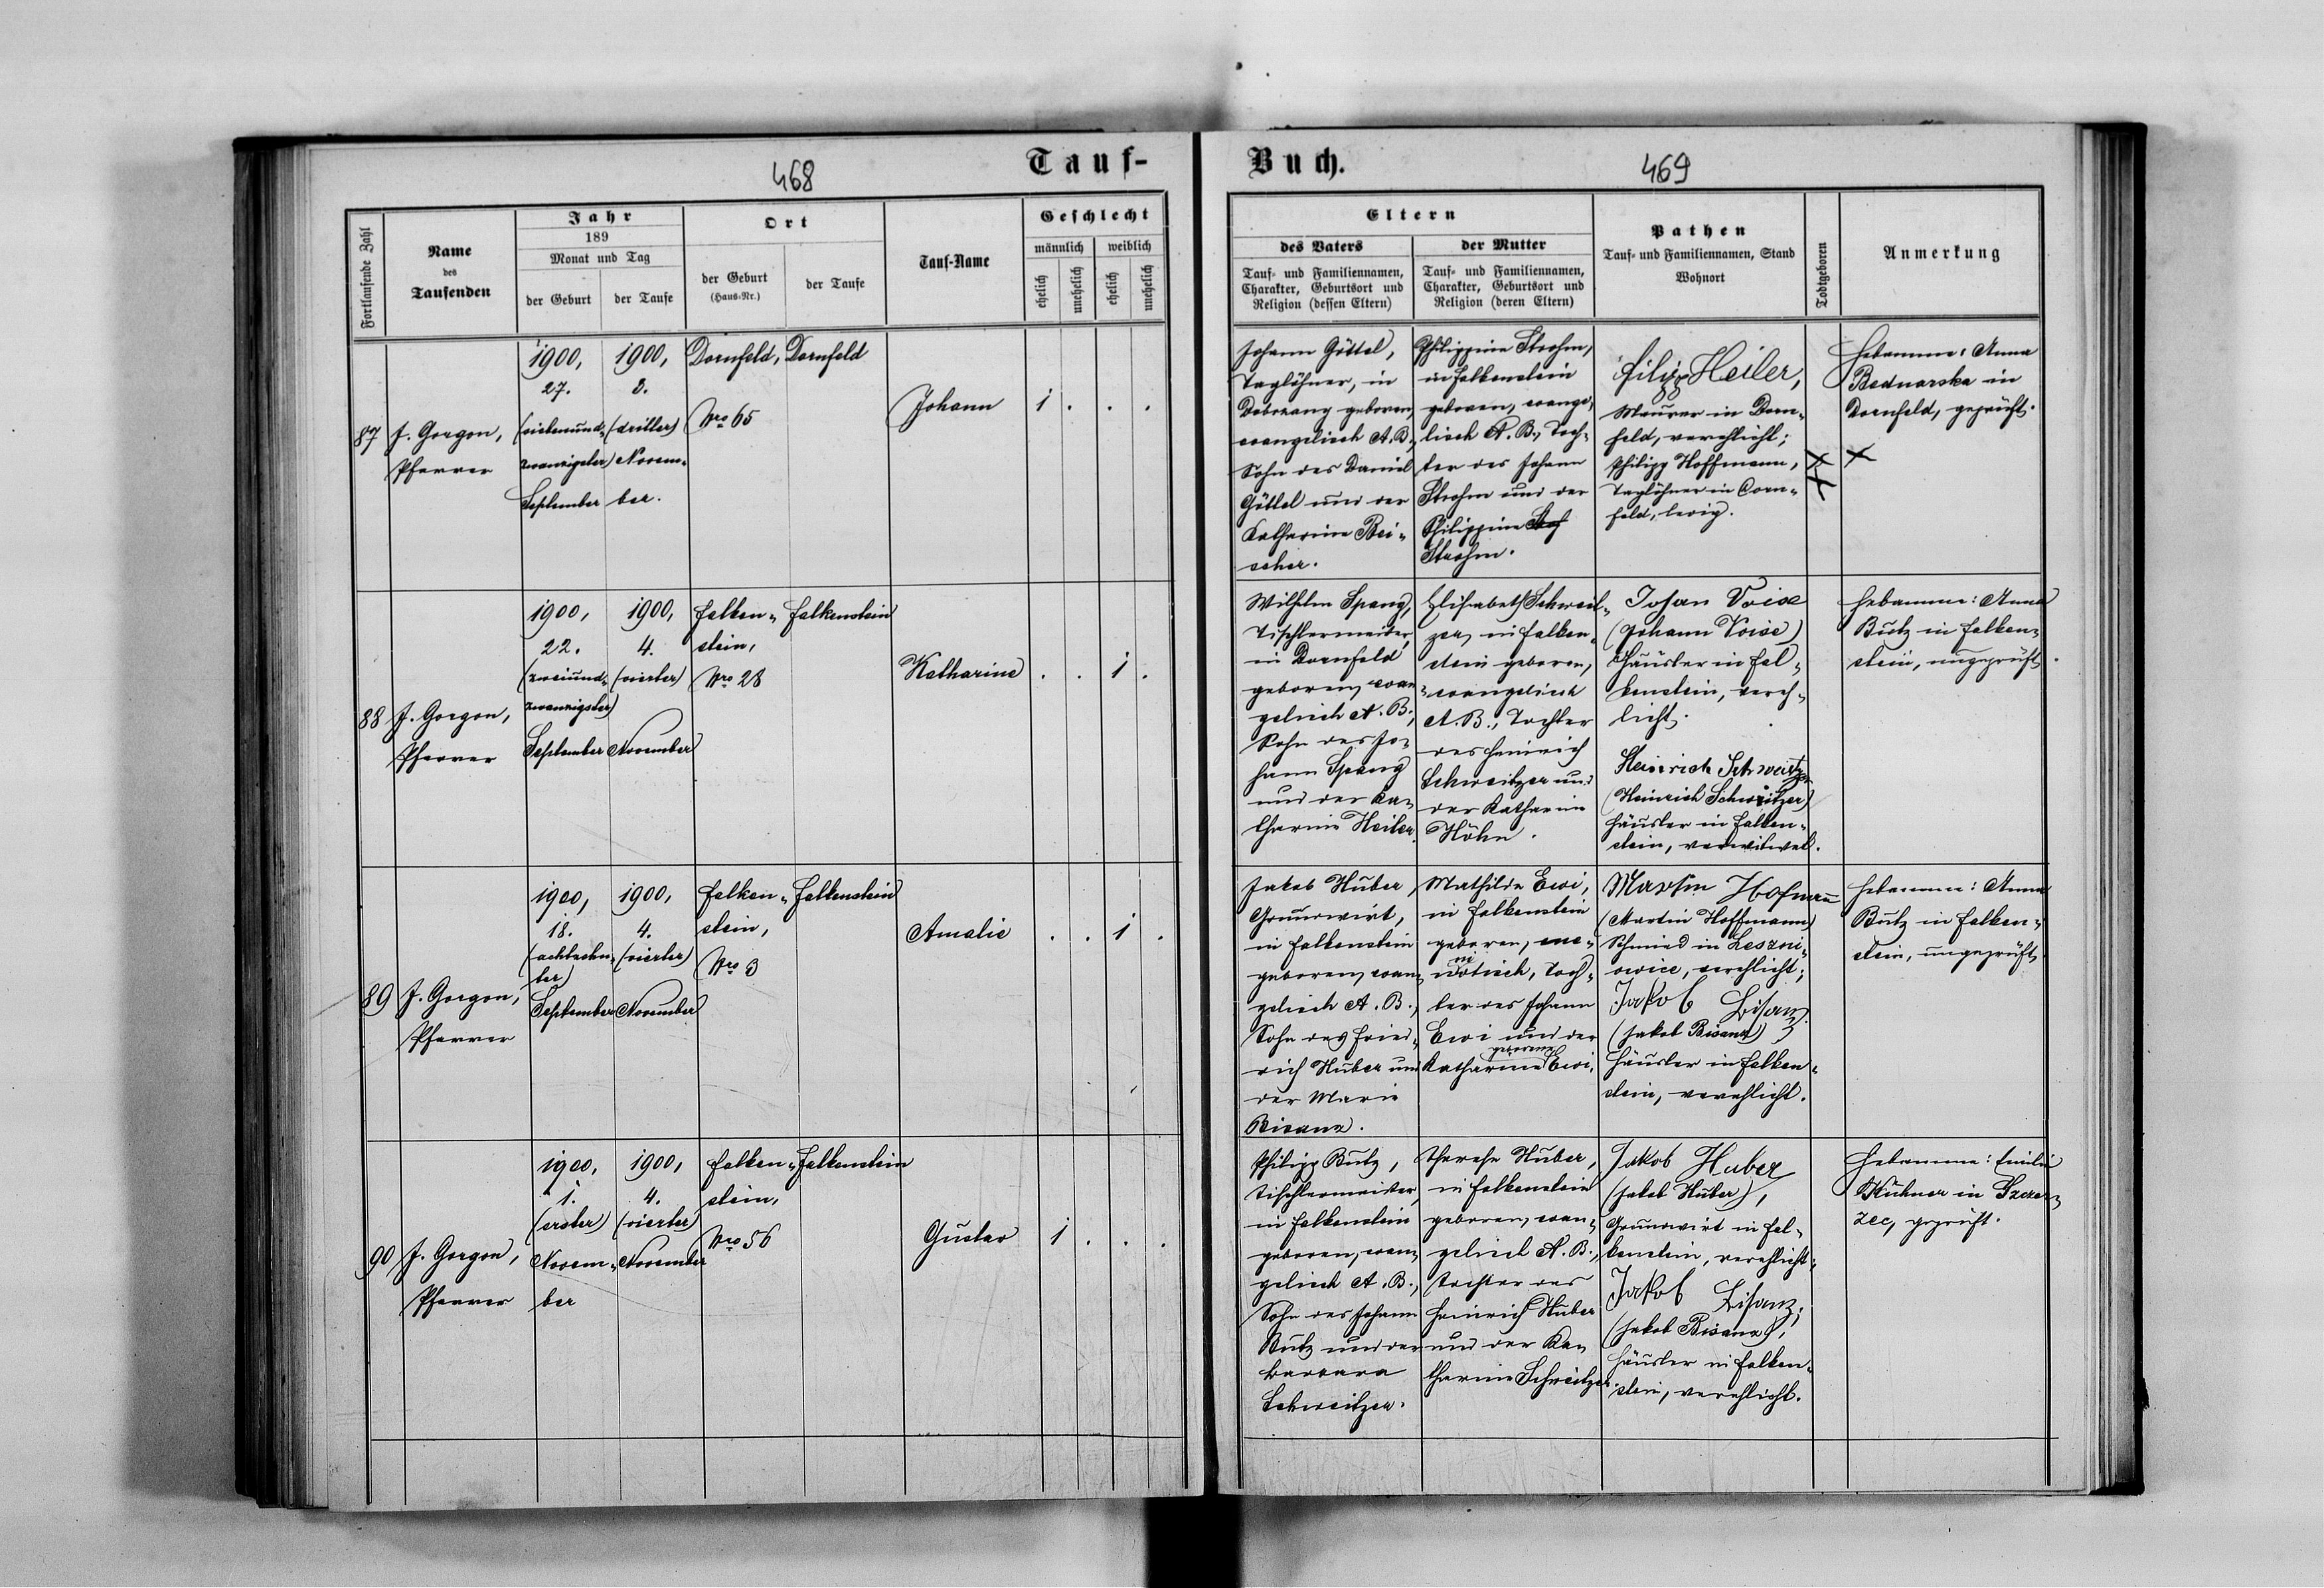 468
Tauf-
Fortlaufende Zahl
Name
des
Taufenden
Jahr
189
Monat und Tag
der Geburt
der Taufe
Ort
der Geburt
(Haus-Nr.)
der Taufe
Tauf-Name
Geschlecht
männlich
weiblich
ehelich
unehelich
ehelich
unehelich
87
J. Gorgon,
Pfarrer
1900,
27.
(siebenund-
zwanzigster)
September
1900,
3.
(dritter)
Novem-
ber.
Dornfeld,
Nro 65
Dornfeld
Johann
1 . . .
88
J. Gorgon,
Pfarrer
1900,
22.
(zweiund-
zwanzigster)
September
1900,
4.
(vierter)
November
Falken-
stein,
Nro 28
Falkenstein
Katharine
. . 1 .
89
J. Gorgon,
Pfarrer
1900,
18.
(achtzehn-
ter)
September
1900,
4.
(vierter)
November
Falken-
stein,
Nro 3
Falkenstein
Amalie
. . 1 .
90
J. Gorgon,
Pfarrer
1900,
1.
(erster)
Novem-
ber
1900,
4.
(vierter)
November
Falken-
stein,
Nro 56
Falkenstein
Gustav
1 . . .
Buch.
469
Eltern
des Vaters
Tauf- und Familiennamen,
Charakter, Geburtsort und
Religion (dessen Eltern)
der Mutter
Tauf- und Familiennamen,
Charakter, Geburtsort und
Religion (deren Eltern)
Pathen
Tauf- und Familiennamen, Stand
Wohnort
Todtgeboren
Anmerkung
Johann Göttel,
Taglöhner, in
geboren,
evangelisch A.B.,
Sohn des Daniel
Göttel und der
Katharine Bei-
scher.
Philippine Strohm,
in Falkenstein
geboren, evange-
lisch A.B., Toch-
ter des Johann
Strohm und der
Philippine
Strohm.
Filipp Heiler,
Maurer in Dorn-
feld, verehlicht;
Philipp Hoffmann,
Taglöhner in Dorn-
feld, ledig.
Hebamme: Anna
Bednarska in
Dornfeld, geprüft.
Wilhelm Spang,
Tischlermeister,
in Dornfeld
geboren, evan-
gelisch A.B.,
Sohn des Jo-
hann Spang
und der Ka-
tharine Heiler.
Elisabeth Schweit-
zer, in Falken-
stein geboren,
evangelisch
A.B., Tochter
des Heinrich
Schweitzer und
der Katharine
Höhn.
Johan Voise
(Johann Voise)
Häusler in Fal-
kenstein, vereh-
licht.
Heinrich Schweitzer
(Heinrich Schweitzer)
Häusler in Falken-
stein, verwitwet.
Hebamme: Anna
Butz in Falken-
stein, ungeprüft.
Jakob Huber,
Grundwirt,
in Falkenstein
geboren, evan-
gelisch A.B.,
Sohn des Fried-
rich Huber und
der Marie
Bisanz.
Mathilde Ewi,
in Falkenstein
geboren, me-
notisch, Toch-
ter des Johann
Ewi und der
Katharine geborene Ewi.
Martin Hofmann
(Martin Hoffmann)
Schmied in Leszni-
owice, verehlicht;
Jakob Bisanz
(Jakob Bisanz)
Häusler in Falken-
stein, verehlicht.
Hebamme: Anna
Butz in Falken-
stein, ungeprüft.
Philipp Butz,
Tischlermeister,
in Falkenstein
geboren, evan-
gelisch A.B.,
Sohn des Johann
Butz und der
Barbara
Schweitzer.
Therese Huber,
in Falkenstein
geboren, evan-
gelisch A.B.,
Tochter des
Heinrich Huber
und der Ka-
tharine Schweitzer
Jakob Huber
(Jakob Huber),
Grundwirt in Fal-
kenstein, verehlicht;
Jakob Bisanz;
(Jakob Bisanz),
Häusler in Falken-
stein, verehlicht.
Hebamme: Emilie
Kühner in Szczer-
zec, geprüft.